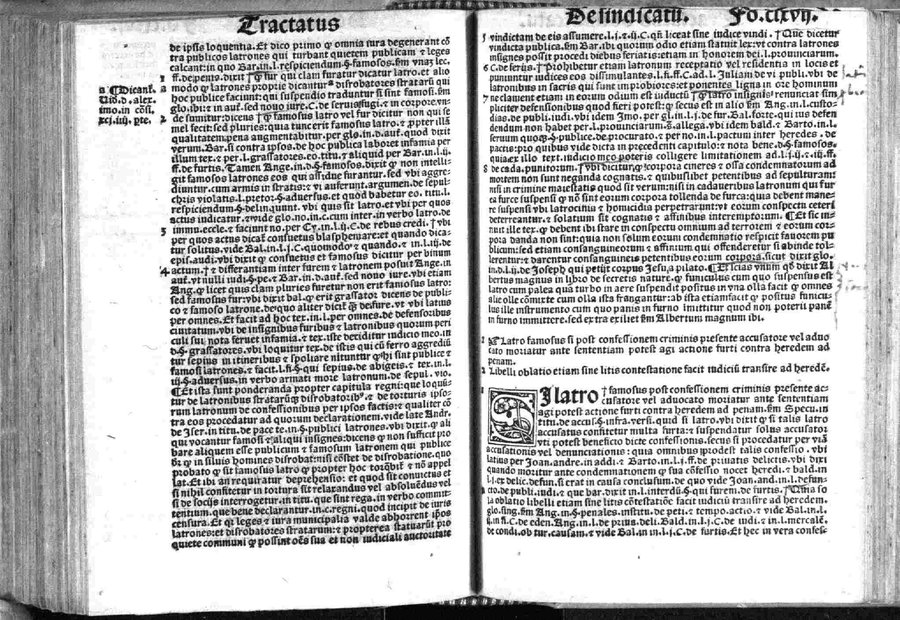 Tractatus
de ipsis loquentia. Et dico primo ꝙ omnia iura degenerant cō
tra publicos latrones qui turbant quietem publicam ⁊ leges
calcant: in quo Bar. in. l. respiciendum. §. famosos. fm vnaz lec.
ff. de penis. dixit ꝙ fur qui clam furatur dicatur latro. et alio
modo ꝙ latrones proprie dicantur disrobatores stratarū qui
hoc publice faciunt: qui suspendio traduntur si sint famosi. fm
glo. ibi: ⁊ in aut. sed nouo iure. C. de seruis fugi. ⁊ in corpore. vn
de sumitur: dicens ꝙ famosus latro vel fur dicitur non qui se
mel fecit sed pluries: quia tunc erit famosus latro. ⁊ propter illā
qualitatem. pena augmentabitur. per glo. in. d. aut. quod dixit
verum. Bar. si contra ipsos. de hoc publica laboret infamia per
illum tex. ⁊ per. l. grassatores. eo. titu. ⁊ aliquid per Bar. in. l. si.
ff. de furtis. Tamen Ange. in. d. §. famosos. dixit ꝙ non intelli-
git famosos latrones eos qui assidue furantur. sed vbi aggre-
diuntur. cum armis in stratis: ⁊ vi auferunt. argumen. de sepul-
chris violatis. l. pretor. §. aduersus. et quod habetur eo. titu. l.
respiciendum. §. delinquunt. vbi quis sit latro. et vbi per quos
actus iudicatur. ⁊ vide glo. no. in. c. cum inter. in verbo latro. de
immu. eccle. ⁊ faciunt no. per Cy. in. l. ij. C. de rebus credi. vbi
per quos actus dicat̄ consuetus blasphemare: et quando dica-
tur solitus. vide Bal. in. l. j. C. quomodo ⁊ quando. ⁊ in. l. iij. de
epis. audi. vbi dixit ꝙ consuetus et famosus dicitur per binum
actum. ⁊ differantiam inter furem ⁊ latronem posuit Ange. in
aut. vt nulli iudi. §. pe. ⁊ Bar. in. d. aut. sed nouo iure. vbi etiam
Ang. ꝙ licet quis clam pluries furetur non erit famosus latro:
sed famosus fur: vbi dixit bal. ꝙ erit grassator dicens de publi-
co ⁊ famoso latrone. deꝙo aliter dicit qd̄ de fure. vt vbi latius
per omnes. Et facit ad hoc tex. in. l. per omnes. de defensoribus
ciuitatum. vbi de insignibus furibus ⁊ latronibus quorum peri
culi sui nota seruet infamia. ⁊ tex. iste deciditur iudicio meo. in
d. §. grassatores. vbi loquitur tex. de istis qui cū ferro aggrediū
tur sepius in itineribus ⁊ spoliare nituntur ꝙ hi sunt publice ⁊
famosi latrones. ⁊ facit. l. fi. §. qui sepius. de abigeis. ⁊ tex. in. l.
iij. §. aduersus. in verbo armati more latronum. de sepul. vio.
¶ Et ista sunt ponderanda propter capitula regni: que loquū-
tur de latronibus strataꝝ ꝙ disrobatoribꝰ. ⁊ de torturis ipso-
rum latronum de confessionibus per ipsos factis: et qualiter cō
tra eos procedatur ad quorum declarationem. vide late Andr.
de Iser. in titu. de pace te. in. §. publici latrones. vbi dixit. ꝙ ali
qui vocantur famosi ⁊ aliqui insignes: dicens ꝙ non sufficit pro
bare aliquem esse publicum ⁊ famosum latronem qui publice
ꝙ in siluis homines disrobat: nisi cōstet de disrobatione. quo
probato ꝙ sit famosus latro ꝙ propter hoc torq̄bit̄ ⁊ nō appel
lat. Et ibi an requiratur deprehensio: et quod sit conuictus et
si nihil confitetur in tortura sit relaxandus vel absoluēdus vel
si de socijs interrogetur. in titu. que sint rega. in verbo commit-
tentium. que bene declarantur. in. c. regni. quod incipit de iuris
censura. Et qꝫ leges ⁊ iura municipalia valde abhorrent ipsos
latrones: et disrobatores stratarum: ⁊ propterea statuarūt pro
quiete communi ꝙ possint oēs suo et non iudiciali auctoritate
a ¶ Dicant.
Uid. d. alex.
imo. in cōsi.
xcj. iiij. pte.
1
2
3
4
De sindicatu. Fo. clxvij.
vindictam de eis assumere. l. j. ⁊. ij. C. qn̄ liceat sine iudice vindi. Que dicetur
vindicta publica. fm Bar. ibi quorum odio etiam statuit lex: vt contra latrones
insignes possit procedi diebus feriatis: etiam in honorem dei. l. prouinciarum.
C. de ferijs. Prohibetur etiam latronum receptatio vel residentia in locis et
puniuntur iudices eos dissimulantes. l. fi. ff. C. ad. l. Iuliam de vi publi. vbi de
latronibus in sacris qui sunt improbiores et ponentes ligna in ore hominum
ne clament etiam in eorum odium est inductū ꝙ latro insignis renunciat sim
pliciter defensionibus quod fieri potest: ꝙ secus est in alio fm Ang. in. l. custo-
dias. de publi. iudi. vbi idem Imo. per gl. in. l. j. de fur. Bal. forte. qui ius defen
dendum non habet per. l. prouinciarum. allega. vbi idem bald. ⁊ Barto. in. l.
fi. in fine. de publi. de procurato. ⁊ per no. in. l. pactum inter heredes. de
pactis: pro quibus vide dicta in precedenti capitulo: ⁊ nota bene. d. §. famosos.
quia ex illo text. iudicio meo poteris colligere limitationem ad. l. j. ⁊. ij. ⁊ iij. ff.
de cada. punitorum. vbi dicitur ꝙ corpora cineres ⁊ ossa condemnatorum ad
mortem non sunt neganda cognatis. ⁊ quibuslibet petentibus ad sepulturam:
nisi in crimine maiestatis quod sit verum: nisi in cadaueribus latronum qui fur
ca furce suspensi ꝙ nō sunt eorum corpora tollenda de furca: quia debent mane
re suspensi vbi latrocinia ⁊ homicidia perpetrarunt: vt eorum conspectu ceteri
deterreantur. ⁊ solatium sit cognatis ⁊ affinibus interemptorum. ¶ Et sic in-
nuit ille tex. ꝙ debent ibi stare in conspectu omnium ad terrorem ⁊ eorum cor-
pora danda non sunt: quia non solum eorum condemnatio respicit fauorem pu
blicum: sed etiam consanguineorum ⁊ affinium qui offenderetur si abinde tol-
lerentur: ⁊ darentur consanguineis petentibus eorum corpora. sicut dixit glo.
in. d. l. ij. de Joseph qui petijt corpus Jesu a pilato. ¶ Et scias vnum qd̄ dixit Al
bertus magnus in libro de secretis nature. ꝙ funiculus cum quo suspensus est
latro cum palea quā turbo in aere suspendit positus in vna olla facit ꝙ omnes
alie olle cōmixte cum olla ista frangantur: ab ista etiam facit ꝙ positus funicu-
lus ille instrumento cum quo panis in furno imittitur quod non poterit panē
in furno immittere. sed extra exiliet fm Albertum magnum ibi.
5
6
7
8
1 Latro famosus si post confessionem criminis presente accusatore vel aduo
cato moriatur ante sententiam potest agi actione furti contra heredem ad
penam.
2 Libelli oblatio etiam sine litis contestatione facit iudiciū transire ad heredē.
SI latro famosus post confessionem criminis presente ac-
cusatore vel aduocato moriatur ante sententiam
agi potest actione furti contra heredem ad penam. fm Specu. in
titu. de accus. §. infra. versi. quid si latro. vbi dixit ꝙ si talis latro
accusatus confitetur multa furta: ⁊ suspendatur solus accusator
vti potest beneficio dicte confessionis. secus si procedatur per viā
accusationis vel denunciationis: quia omnibus prodest talis confessio. vbi
latius per Joan. andre. in addi. ⁊ Barto. in. l. j. ff. de priuatis delictis. vbi dixi
quando moritur ante condemnationem ꝙ sua cōfessio nocet heredi. ⁊ bald. in
l. j. ex delic. defun. si erat in causa conclusum. de quo vide Joan. and. in. l. defun-
cto. de publi. iudi. ⁊ que bar. dixit in. l. interdū. §. qui furem. de furtis. Uina so
la oblatio libelli etiam sine litis cōtestatiōe facit iudiciū transire ad heredem.
glo. sing. fm Ang. in. §. penales. institu. de peti. ⁊ tempo. actio. ⁊ vide Bal. in. l.
ij. in fi. C. de eden. Ang. in. l. de pitus. deli. Bald. in. l. j. C. de iudi. ⁊ in. l. mercalē.
de condi. ob tur. causam. ⁊ vide Bal. in. l. j. C. de furtis. Et hec in vera confess